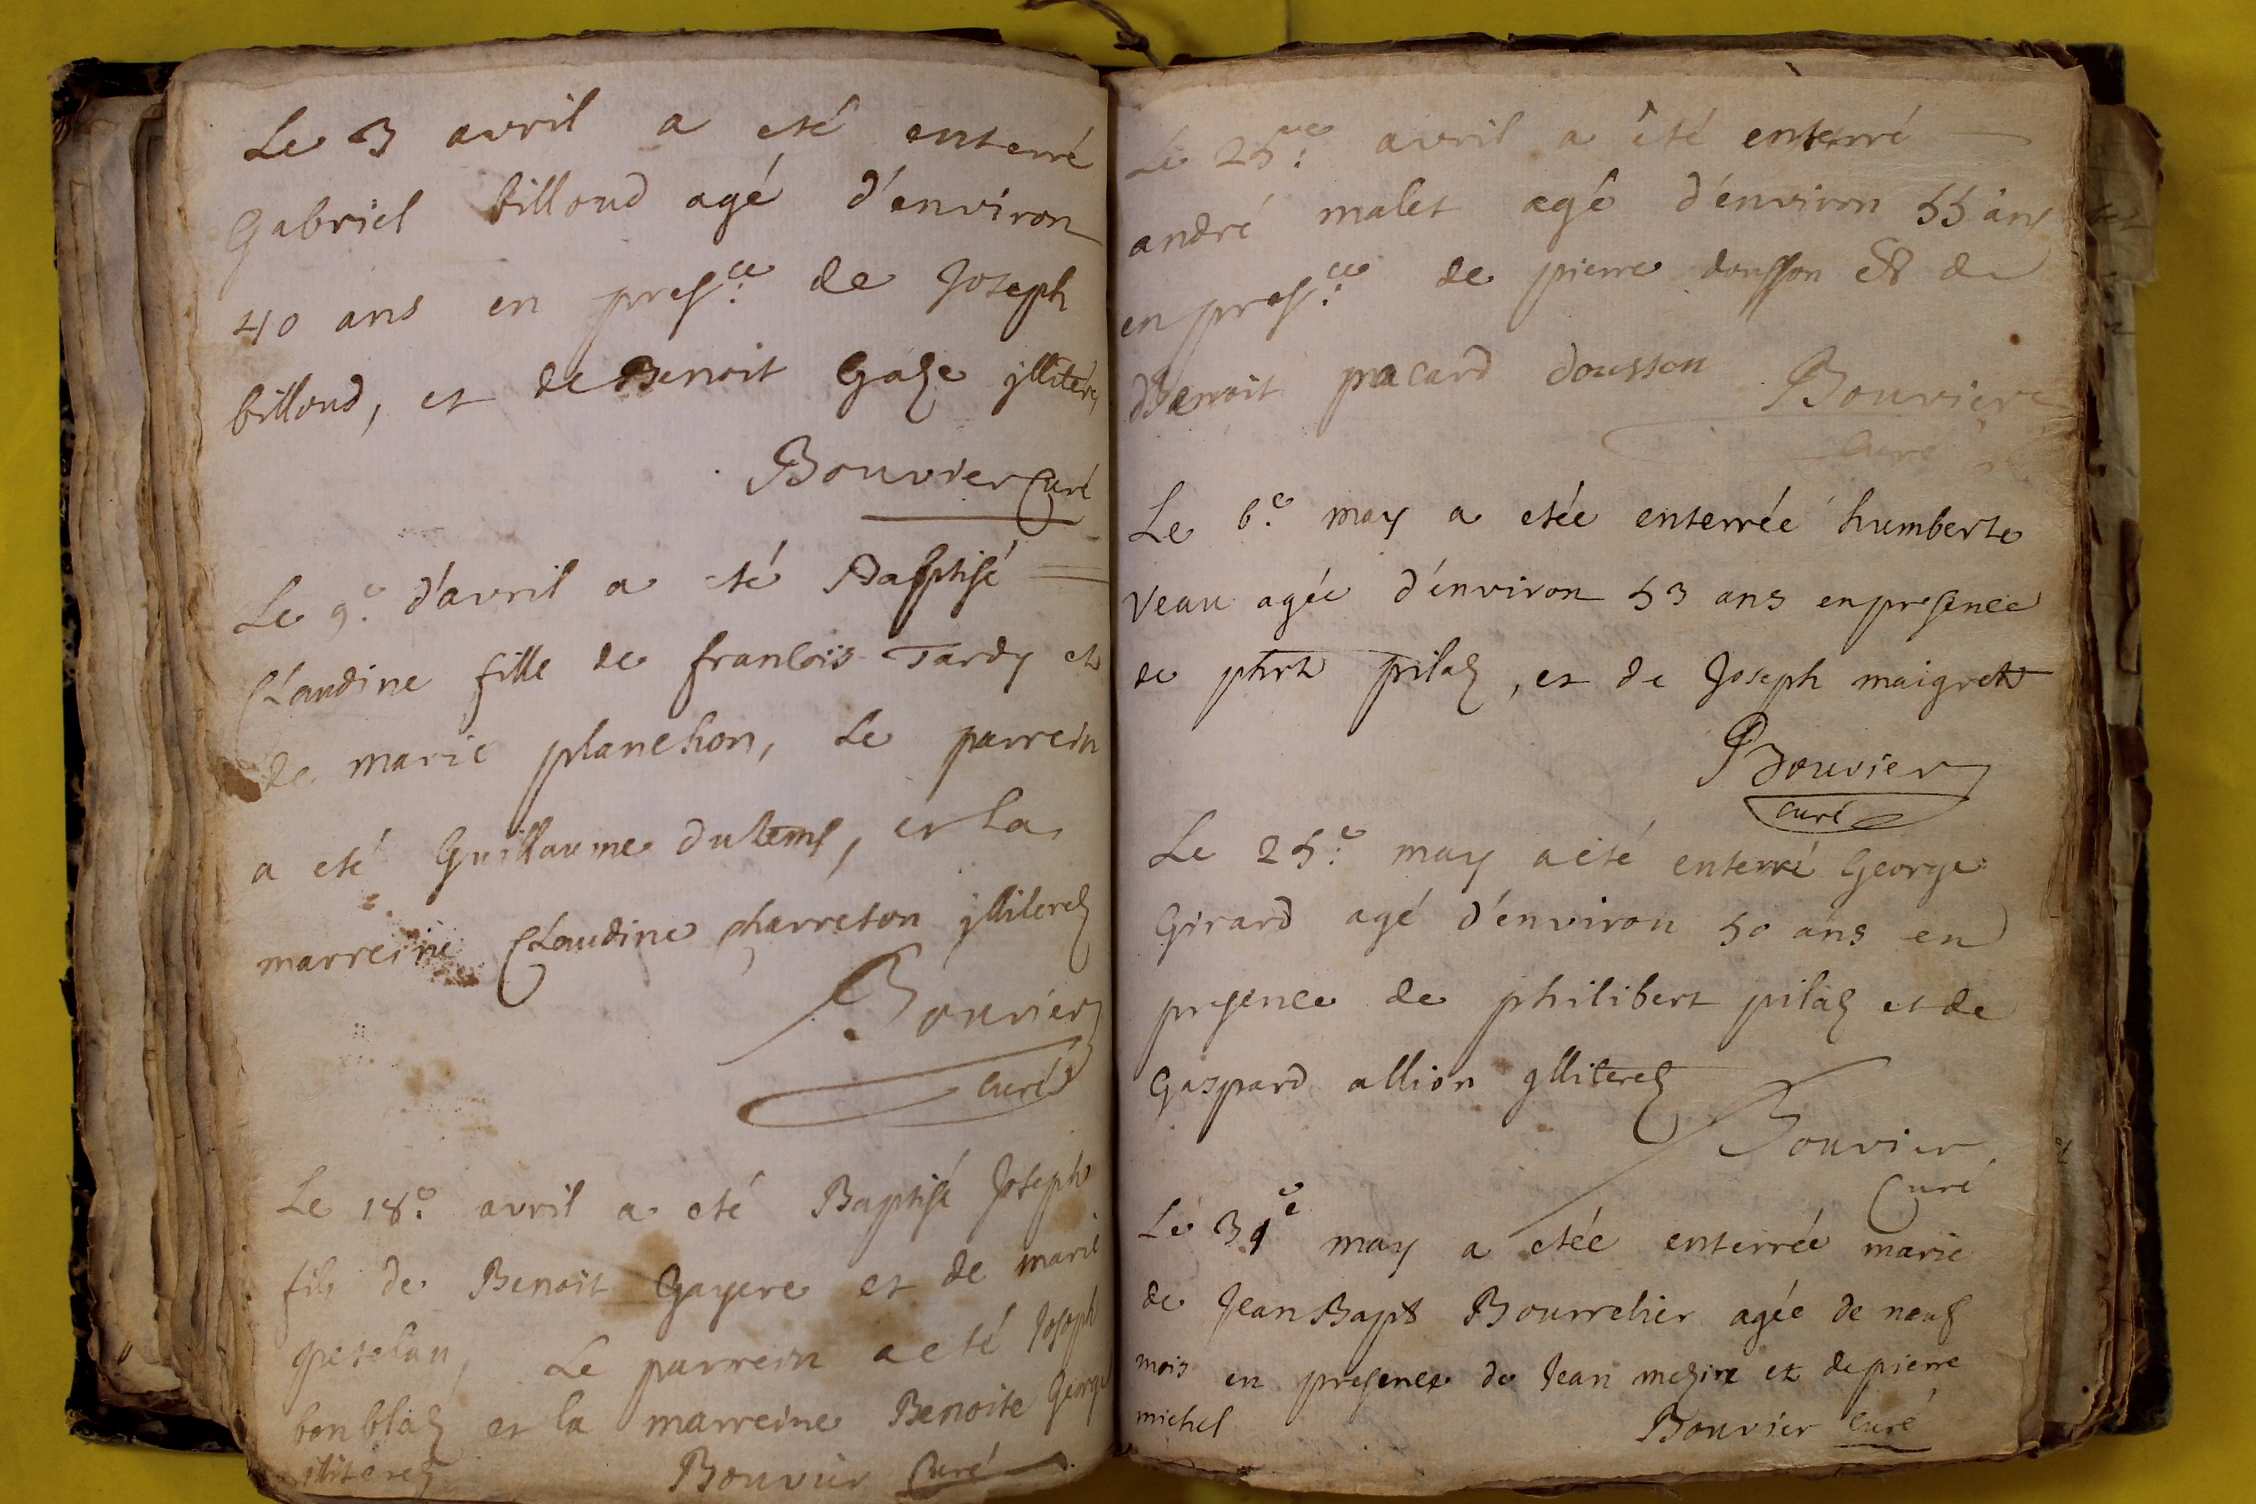 Le 3 avril a eté enterré
Gabriel billoud agé d'environ
40 ans en presce de Joseph
billoud, et de Benoit Gaze jlliterez
Bouvier Curé
Le 9e d'avril a eté Baptisé
Claudine fille de francois Tardy et
de marie planchon, Le parrein
a eté Guillaume dutems, et La
marreine Claudine charreton jlliterez
Bouvier
Curé
Le 18e avril a eté Baptisé Joseph
fils de Benoit Gayere et de marie
Le parrein a eté Joseph
bonblaz et la marreine Benoite George
jlliterez Bouvier Curé
Le 25me avril a été enterré
andré malet agé d'environ 55 ans
en presce de pierre dousson Et de
Benoit pacard dousson Bouvier
Curé
Le 6e may a etée enterrée humberte
Veau agée d'énviron 53 ans en presence
de phrt pilaz, et de Joseph maigret
Bouvier
curé
Le 25e may a eté enterré George
Girard agé d'énviron 50 ans en
presence de philibert pilaz et de
Gaspard allion jlliterez
Bouvier
Curé
Le 31e may a etée enterrée marie
de Jean Bapt Bourrelier agée de neuf
mois en presence de Jean mezire et de pierre
michel
Bouvier Curé